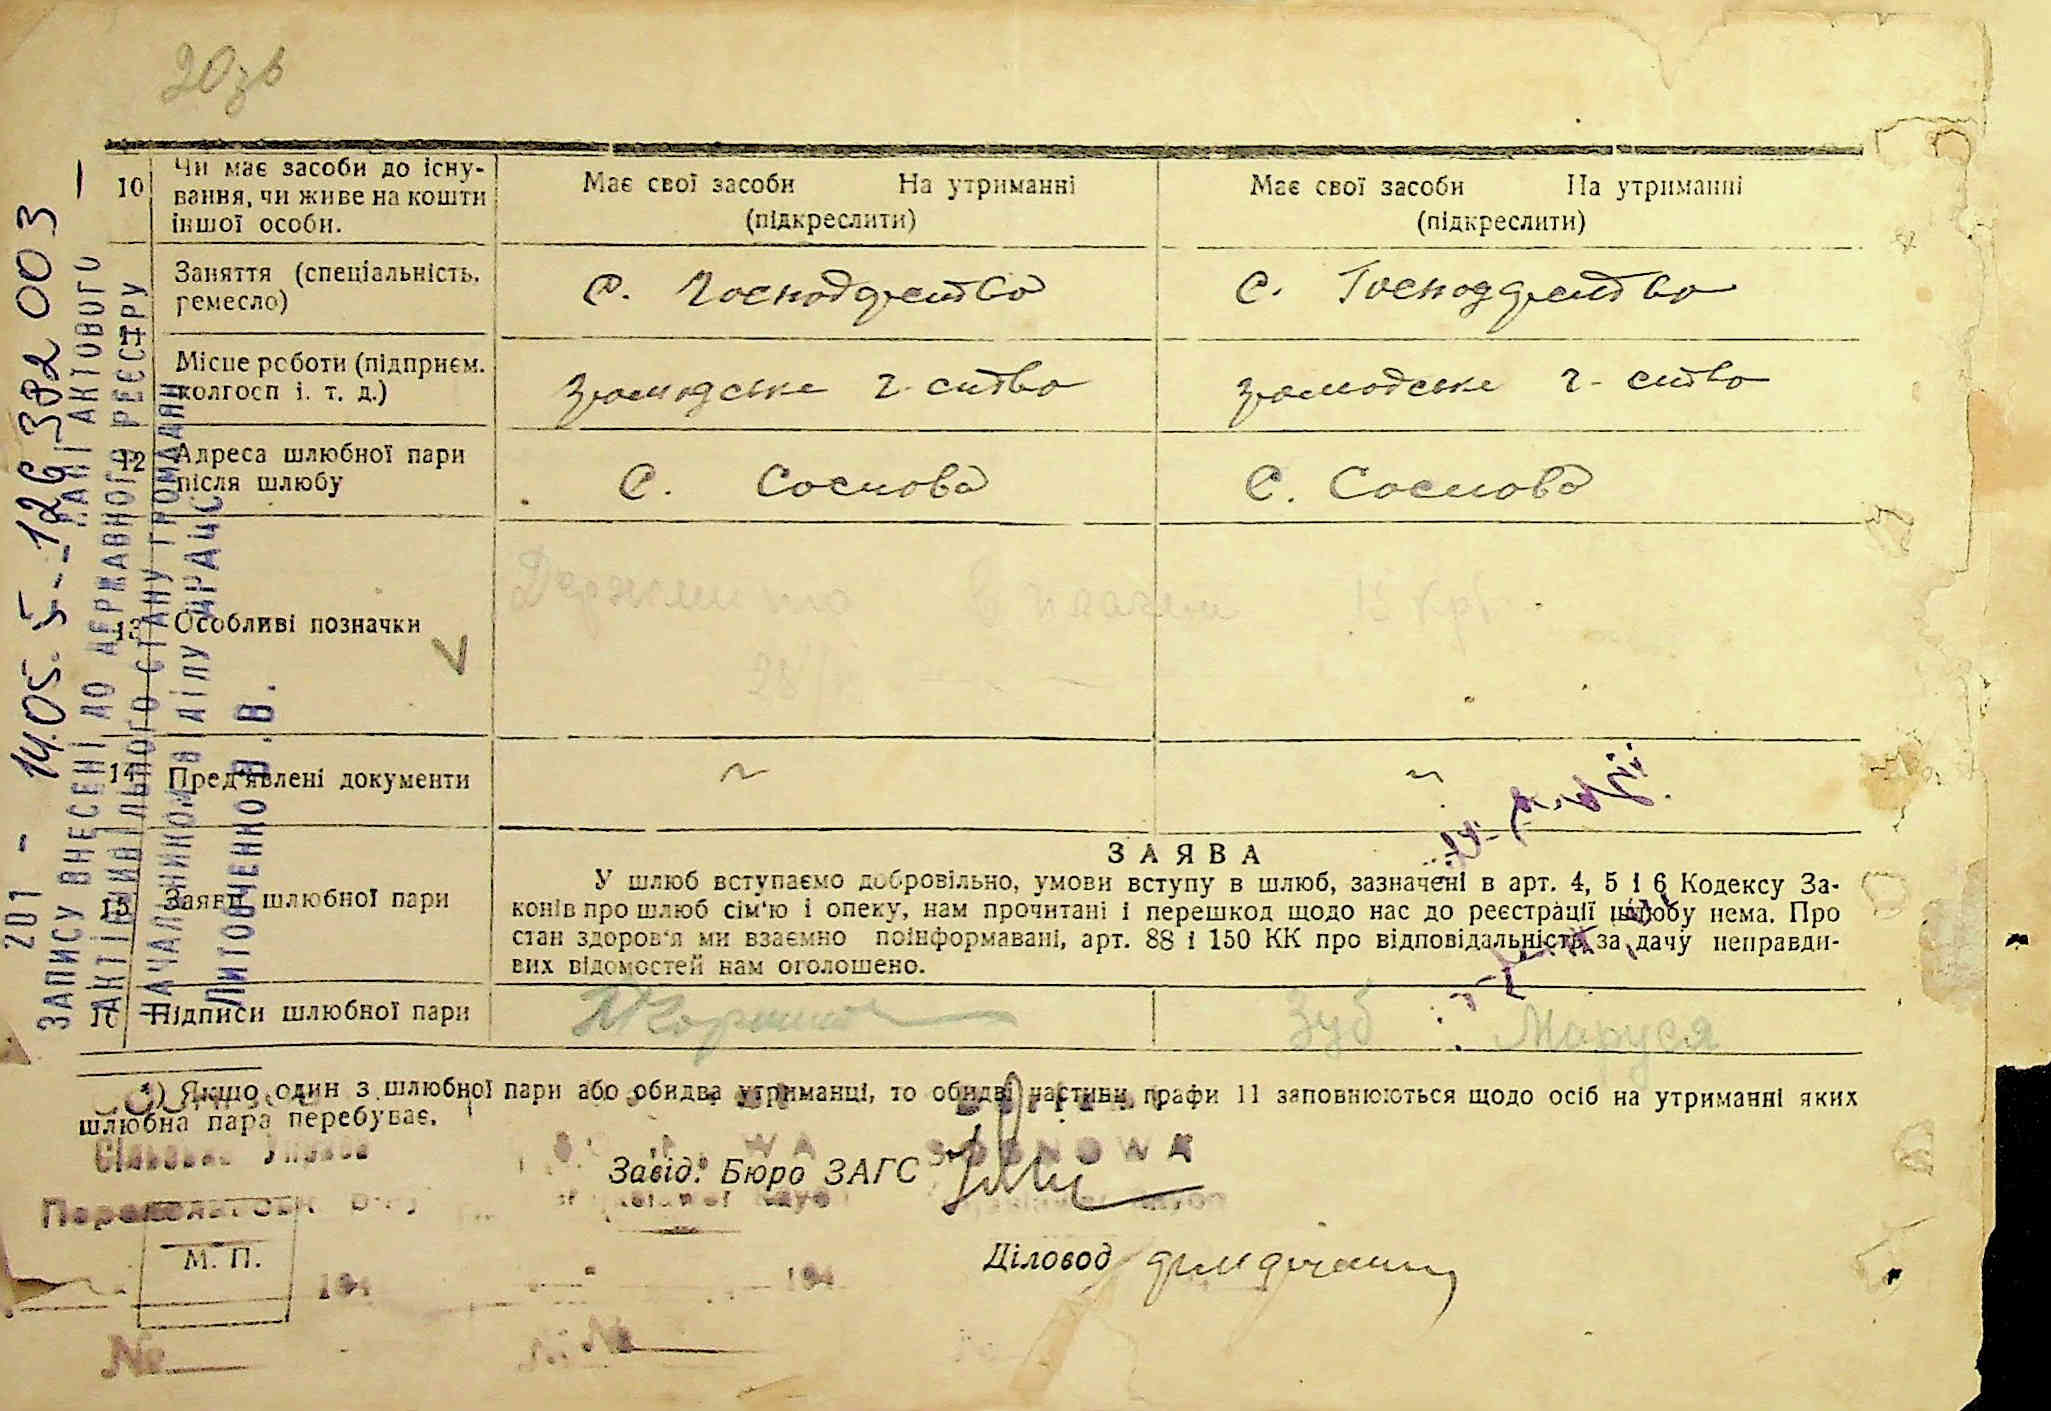 20зв
10 Чи має засоби до існу-
вання, чи живе на кошти
іншої особи.
Має свої засоби На утриманні
(підкреслити)
Має свої засоби На утриманні
(підкреслити)
11
Заняття (спеціальність,
ремесло)
С. Господарство
С. Господарство
Місце роботи (підприєм.
колгосп і. т. д.)
громадське г-ство
громадське г-ство
12 Адреса шлюбної пари
після шлюбу
С. Соснова
С. Соснова
13 Особливі позначки
14 Пред'явлені документи
15 Заяви шлюбної пари
ЗАЯВА
У шлюб вступаємо добровільно, умови вступу в шлюб, зазначені в арт. 4, 5 і 6 Кодексу За-
конів про шлюб сім'ю і опеку, нам прочитані і перешкод щодо нас до реєстрації шлюбу нема. Про
стан здоров'я ми взаємно поінформавані, арт. 88 і 150 КК про відповідальність за дачу неправди-
вих відомостей нам оголошено.
16 Підписи шлюбної пари
Зуб Маруся
*) Якщо один з шлюбної пари або обидва утриманці, то обидві частини графи 11 заповнюються щодо осіб на утриманні яких
шлюбна пара перебуває.
Сільська Управа
SOSNOWA
Завід. Бюро ЗАГС
М. П.
Діловод
194
194
№
№
201 - 14.05. 5- 126 382 003
ЗАПИСУ ВНЕСЕНІ ДО АКТОВОГО
ДЕРЖАВНОГО РЕЄСТРУ
АКТІВ ЦИВІЛЬНОГО СТАНУ ГРОМАДЯН
НАЧАЛЬНИКОМ ВІДДІЛУ ДРАЦС